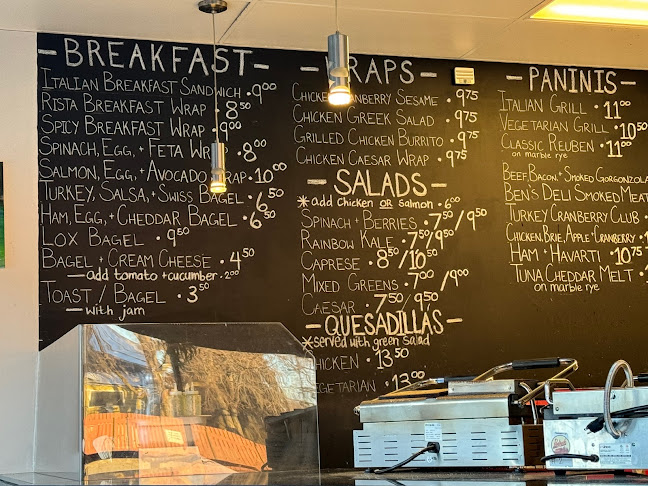 BREAKFAST
ITALIAN BREAKFAST SANDWICH • 9⁰⁰
RISTA BREAKFAST WRAP • 8⁵⁰
SPICY BREAKFAST WRAP • 9⁰⁰
SPINACH, EGG, + FETA WRAP • 8⁰⁰
SALMON, EGG, + AVOCADO WRAP • 10⁰⁰
TURKEY, SALSA, + SWISS BAGEL • 6⁵⁰
HAM, EGG, + CHEDDAR BAGEL • 6⁵⁰
LOX BAGEL • 9⁵⁰
BAGEL + CREAM CHEESE • 4⁵⁰
— add tomato + cucumber • 2⁰⁰
TOAST / BAGEL • 3⁵⁰
— with jam
WRAPS
CHICKEN CRANBERRY SESAME • 9⁷⁵
CHICKEN GREEK SALAD • 9⁷⁵
GRILLED CHICKEN BURRITO • 9⁷⁵
CHICKEN CAESAR WRAP • 9⁷⁵
— SALADS —
* add chicken OR salmon • 6⁰⁰
SPINACH + BERRIES • 7⁵⁰/9⁵⁰
RAINBOW KALE • 7⁵⁰/9⁵⁰
CAPRESE • 8⁵⁰/10⁵⁰
MIXED GREENS • 7⁰⁰/9⁰⁰
CAESAR • 7⁵⁰/9⁵⁰
— QUESADILLAS —
* served with green salad
CHICKEN • 13⁵⁰
VEGETARIAN • 13⁰⁰
— PANINIS —
ITALIAN GRILL • 11⁰⁰
VEGETARIAN GRILL • 10⁵⁰
CLASSIC REUBEN • 11⁰⁰
on marble rye
BEEF, BACON, + SMOKED GORGONZOLA
BEN'S DELI SMOKED MEAT
TURKEY CRANBERRY CLUB •
CHICKEN, BRIE, APPLE + CRANBERRY •
HAM + HAVARTI • 10⁷⁵
TUNA CHEDDAR MELT •
on marble rye